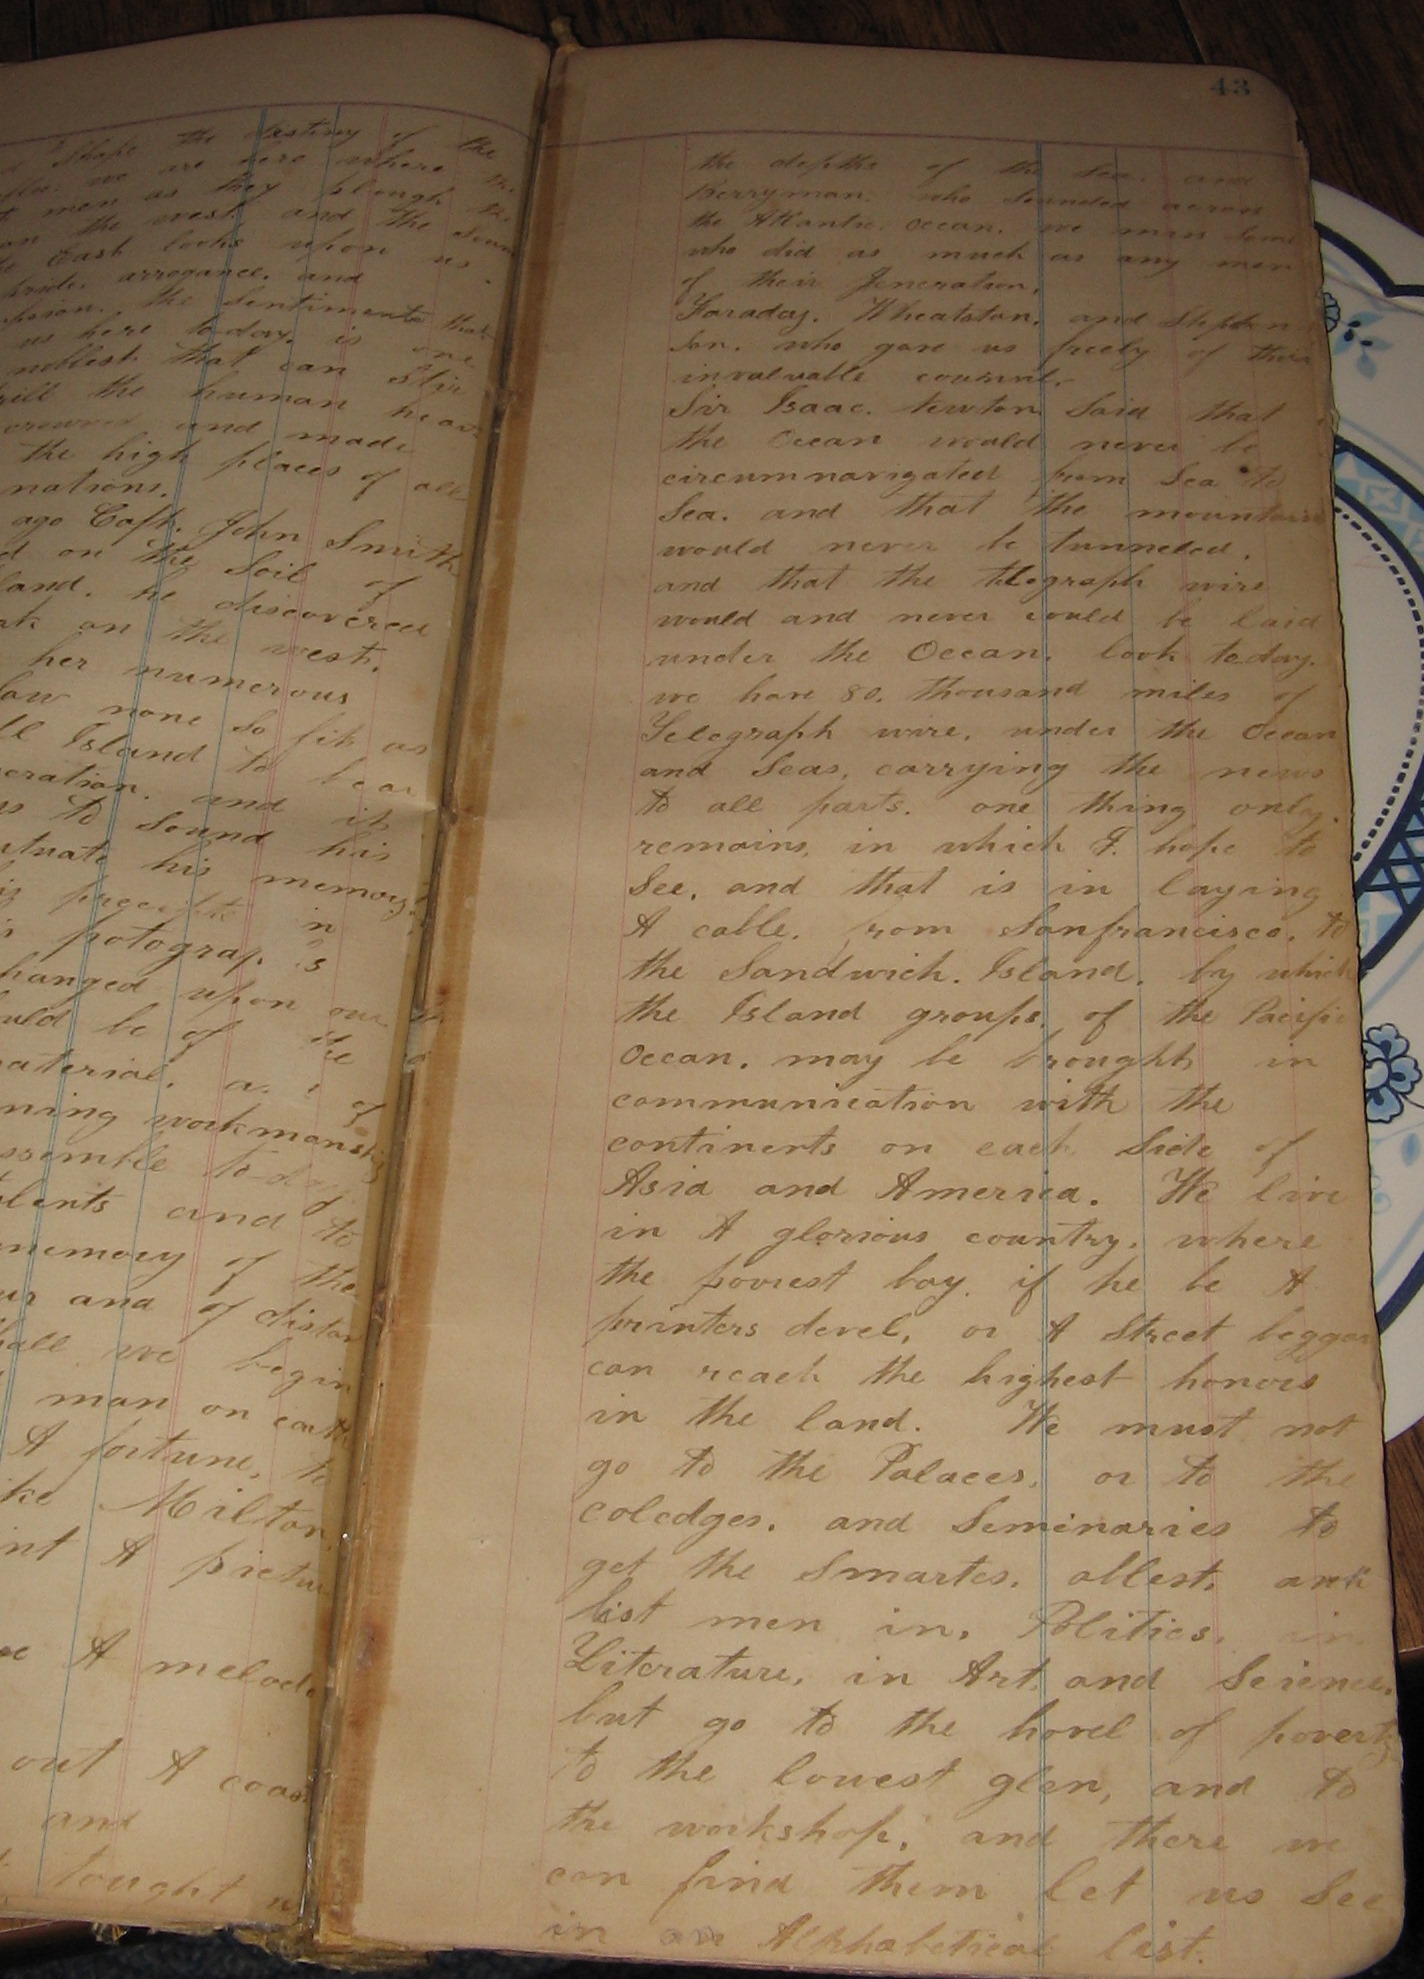 Shape the destiny of the
we are here where
men as they plough the
on the west. and the
East looks upon us.
pride. arrogance. and
the Sentiments that
us here to day. is one
noblest that can Stir
the human
and made
the high places of all
nations.
ago Capt. John Smith
on the Soil of
land. he discovered
on the west.
her numerous
none so fit as
Island to bear
and it
to Sound his
his memory.
in
potograp s
hanged upon our
be of the
material. a. of
workmanship
to day
and to
memory of the
and of distan
we begin
man on earth
A fortune, to
Milton.
A pictu
A melod
out A coas
and
tought
43
the depths of the Sea. and
Berryman. who Sounded across
the Atlantic. Ocean. we miss Some
who did as much as any men
of their Generation.
Faraday. Wheatston. and Stephen
Son. who gave us freely of their
invaluable
Sir Isaac. Newton Said that
the Ocean would never be
circumnavigated from Sea to
Sea. and that the mountains
would never be tunneled.
and that the telegraph wire
would and never could be laid
under the Ocean. look today.
we have 80. thousand miles of
Telegraph wire. under the Ocean
and Seas, carrying the news
to all parts. one thing only.
remains, in which I. hope to
See, and that is in laying
A cable. from Sanfrancisco. to
the Sandwich. Island. by which
the Island groups. of the Pacific
Ocean. may be brought in
communication with the
continents on each Side of
Asia and America. We live
in A glorious country. where
the poorest boy. if he be A
printers devel, or A Street beggar
can reach the highest honors
in the land. We must not
go to the Palaces. or to the
coledges. and Seminaries to
get the Smartes. ablest. and
best men in. Politics. in
Literature, in Art. and Science.
but go to the hovel of poverty
to the lowest glen, and to
the workshop. and there we
can find them let us See
in an Alphabetical list.